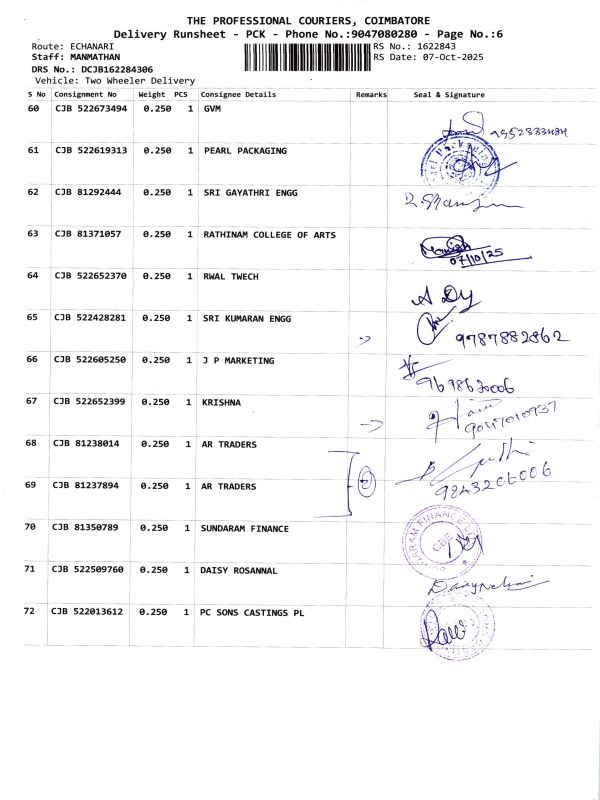 THE PROFESSIONAL COURIERS, COIMBATORE
Delivery Runsheet - PCK - Phone No.:9047080280 - Page No.:6
Route: ECHANARI RS No.: 1622843
Staff: MANMATHAN RS Date: 07-Oct-2025
DRS No.: DCJB162284306
Vehicle: Two Wheeler Delivery
S No Consignment No Weight PCS Consignee Details Remarks Seal & Signature
60 CJB 522673494 0.250 1 GVM
61 CJB 522619313 0.250 1 PEARL PACKAGING
62 CJB 81292444 0.250 1 SRI GAYATHRI ENGG
63 CJB 81371057 0.250 1 RATHINAM COLLEGE OF ARTS
07/10/25
64 CJB 522652370 0.250 1 RWAL TWECH
65 CJB 522428281 0.250 1 SRI KUMARAN ENGG
9787882862
66 CJB 522605250 0.250 1 J P MARKETING
67 CJB 522652399 0.250 1 KRISHNA
9047010937
68 CJB 81238014 0.250 1 AR TRADERS
69 CJB 81237894 0.250 1 AR TRADERS
9843206006
70 CJB 81350789 0.250 1 SUNDARAM FINANCE
71 CJB 522509760 0.250 1 DAISY ROSANNAL
72 CJB 522013612 0.250 1 PC SONS CASTINGS PL